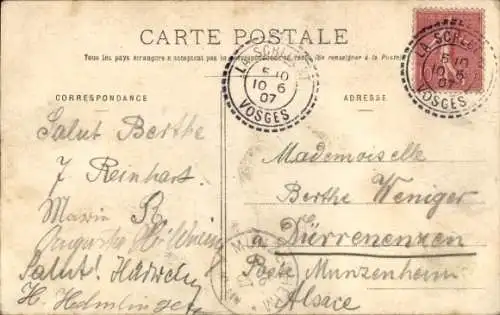 CARTE POSTALE
Tous les pays étrangers n'acceptent pas la correspondance au recto (Se renseigner à la Poste)
CORRESPONDANCE
ADRESSE
LA SCHLUCHT
5 10
10 6
07
VOSGES
LA SCHLUCHT
5 10
10 6
07
VOSGES
Salut Berthe
J Reinhart.
Marie R
Auguste
Salut!
H.
Mademoiselle
Berthe Weniger
Dürrenenzen
Poste Munzenheim
Alsace